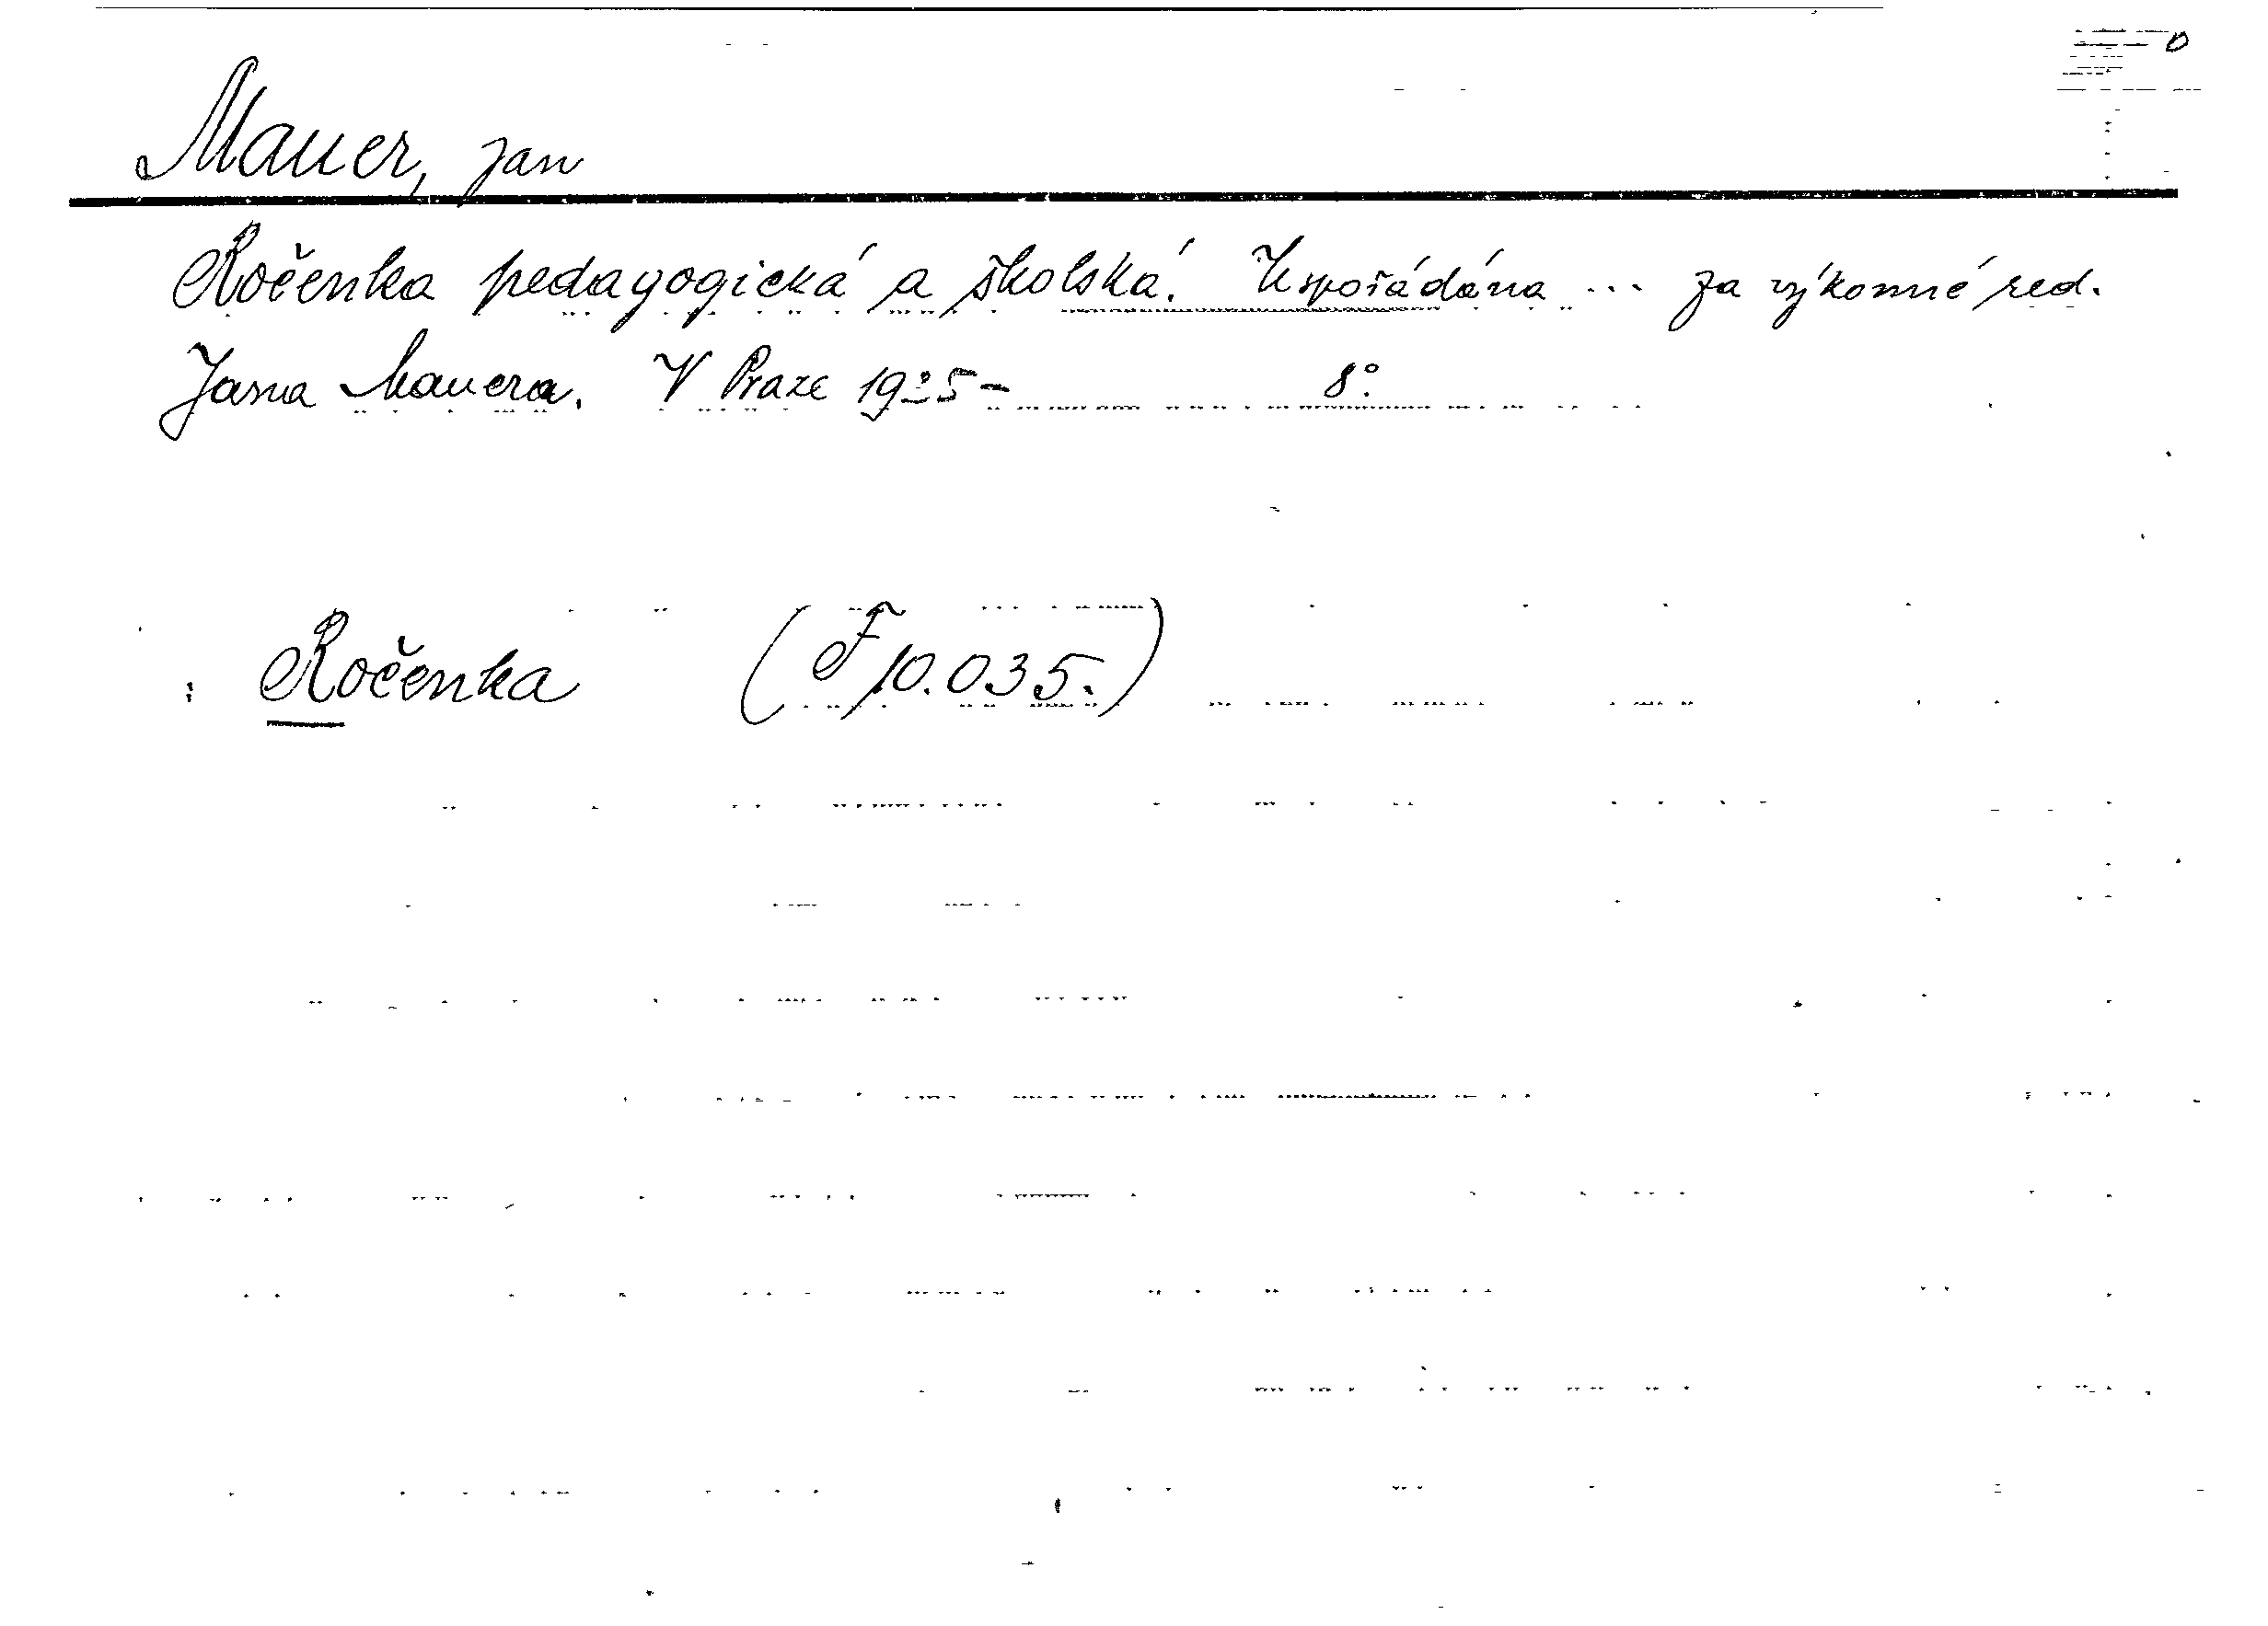 Mauer, Jan
Ročenka pedagogická a školská. Uspořádána ... za výkonné red.
Jana Mauera. V Praze 1925- 8°.
Ročenka (F 10.035.)